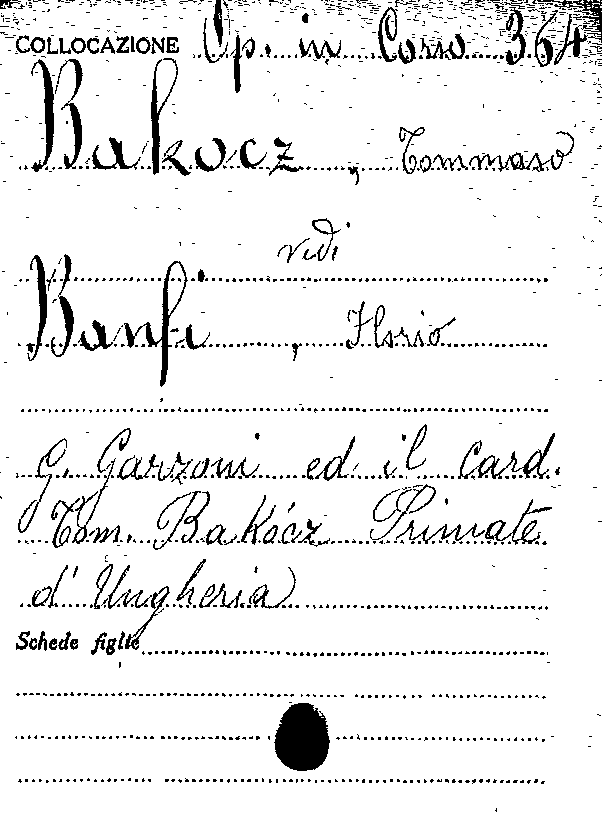 COLLOCAZIONE Op. in Corso 364
Bakocz, Tommaso
vedi
Banfi, Florio
G. Garzoni ed il Card.
Tom. Bakócz Primate
d'Ungheria
Schede figlie